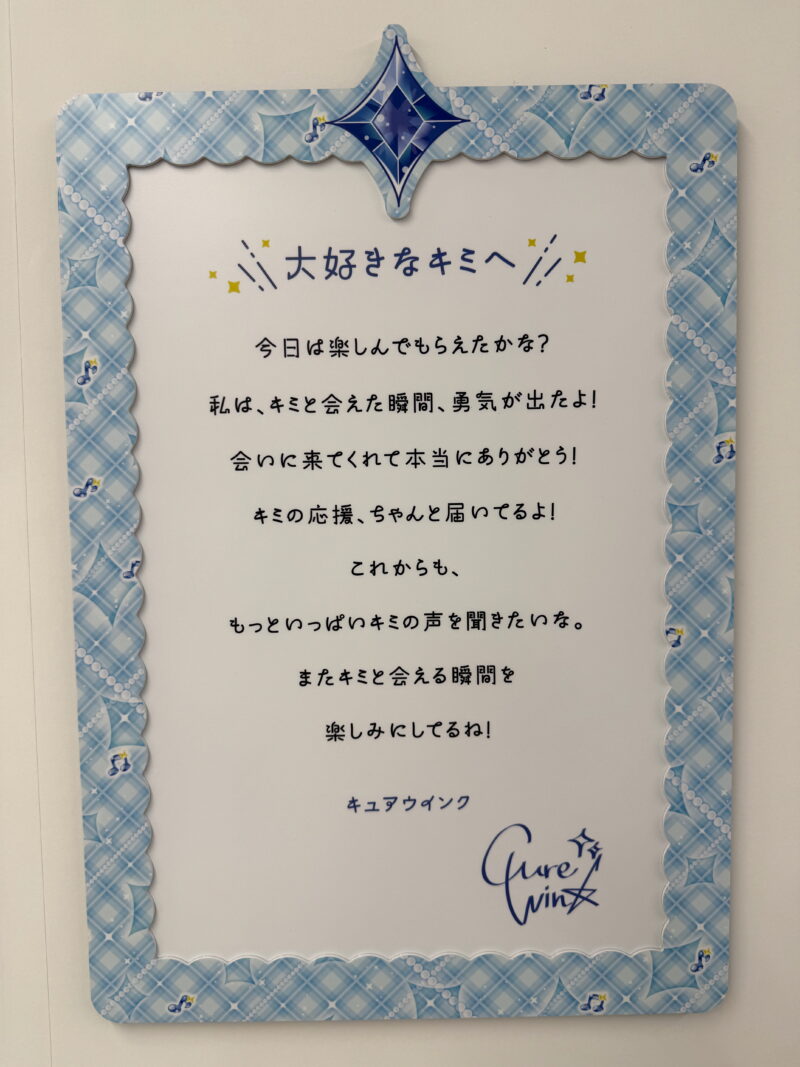 大好きなキミへ
今日は楽しんでもらえたかな?
私は、キミと会えた瞬間、勇気が出たよ!
会いに来てくれて本当にありがとう!
キミの応援、ちゃんと届いてるよ!
これからも、
もっといっぱいキミの声を聞きたいな。
またキミと会える瞬間を
楽しみにしてるね!
キュアウインク
Cure
Wink